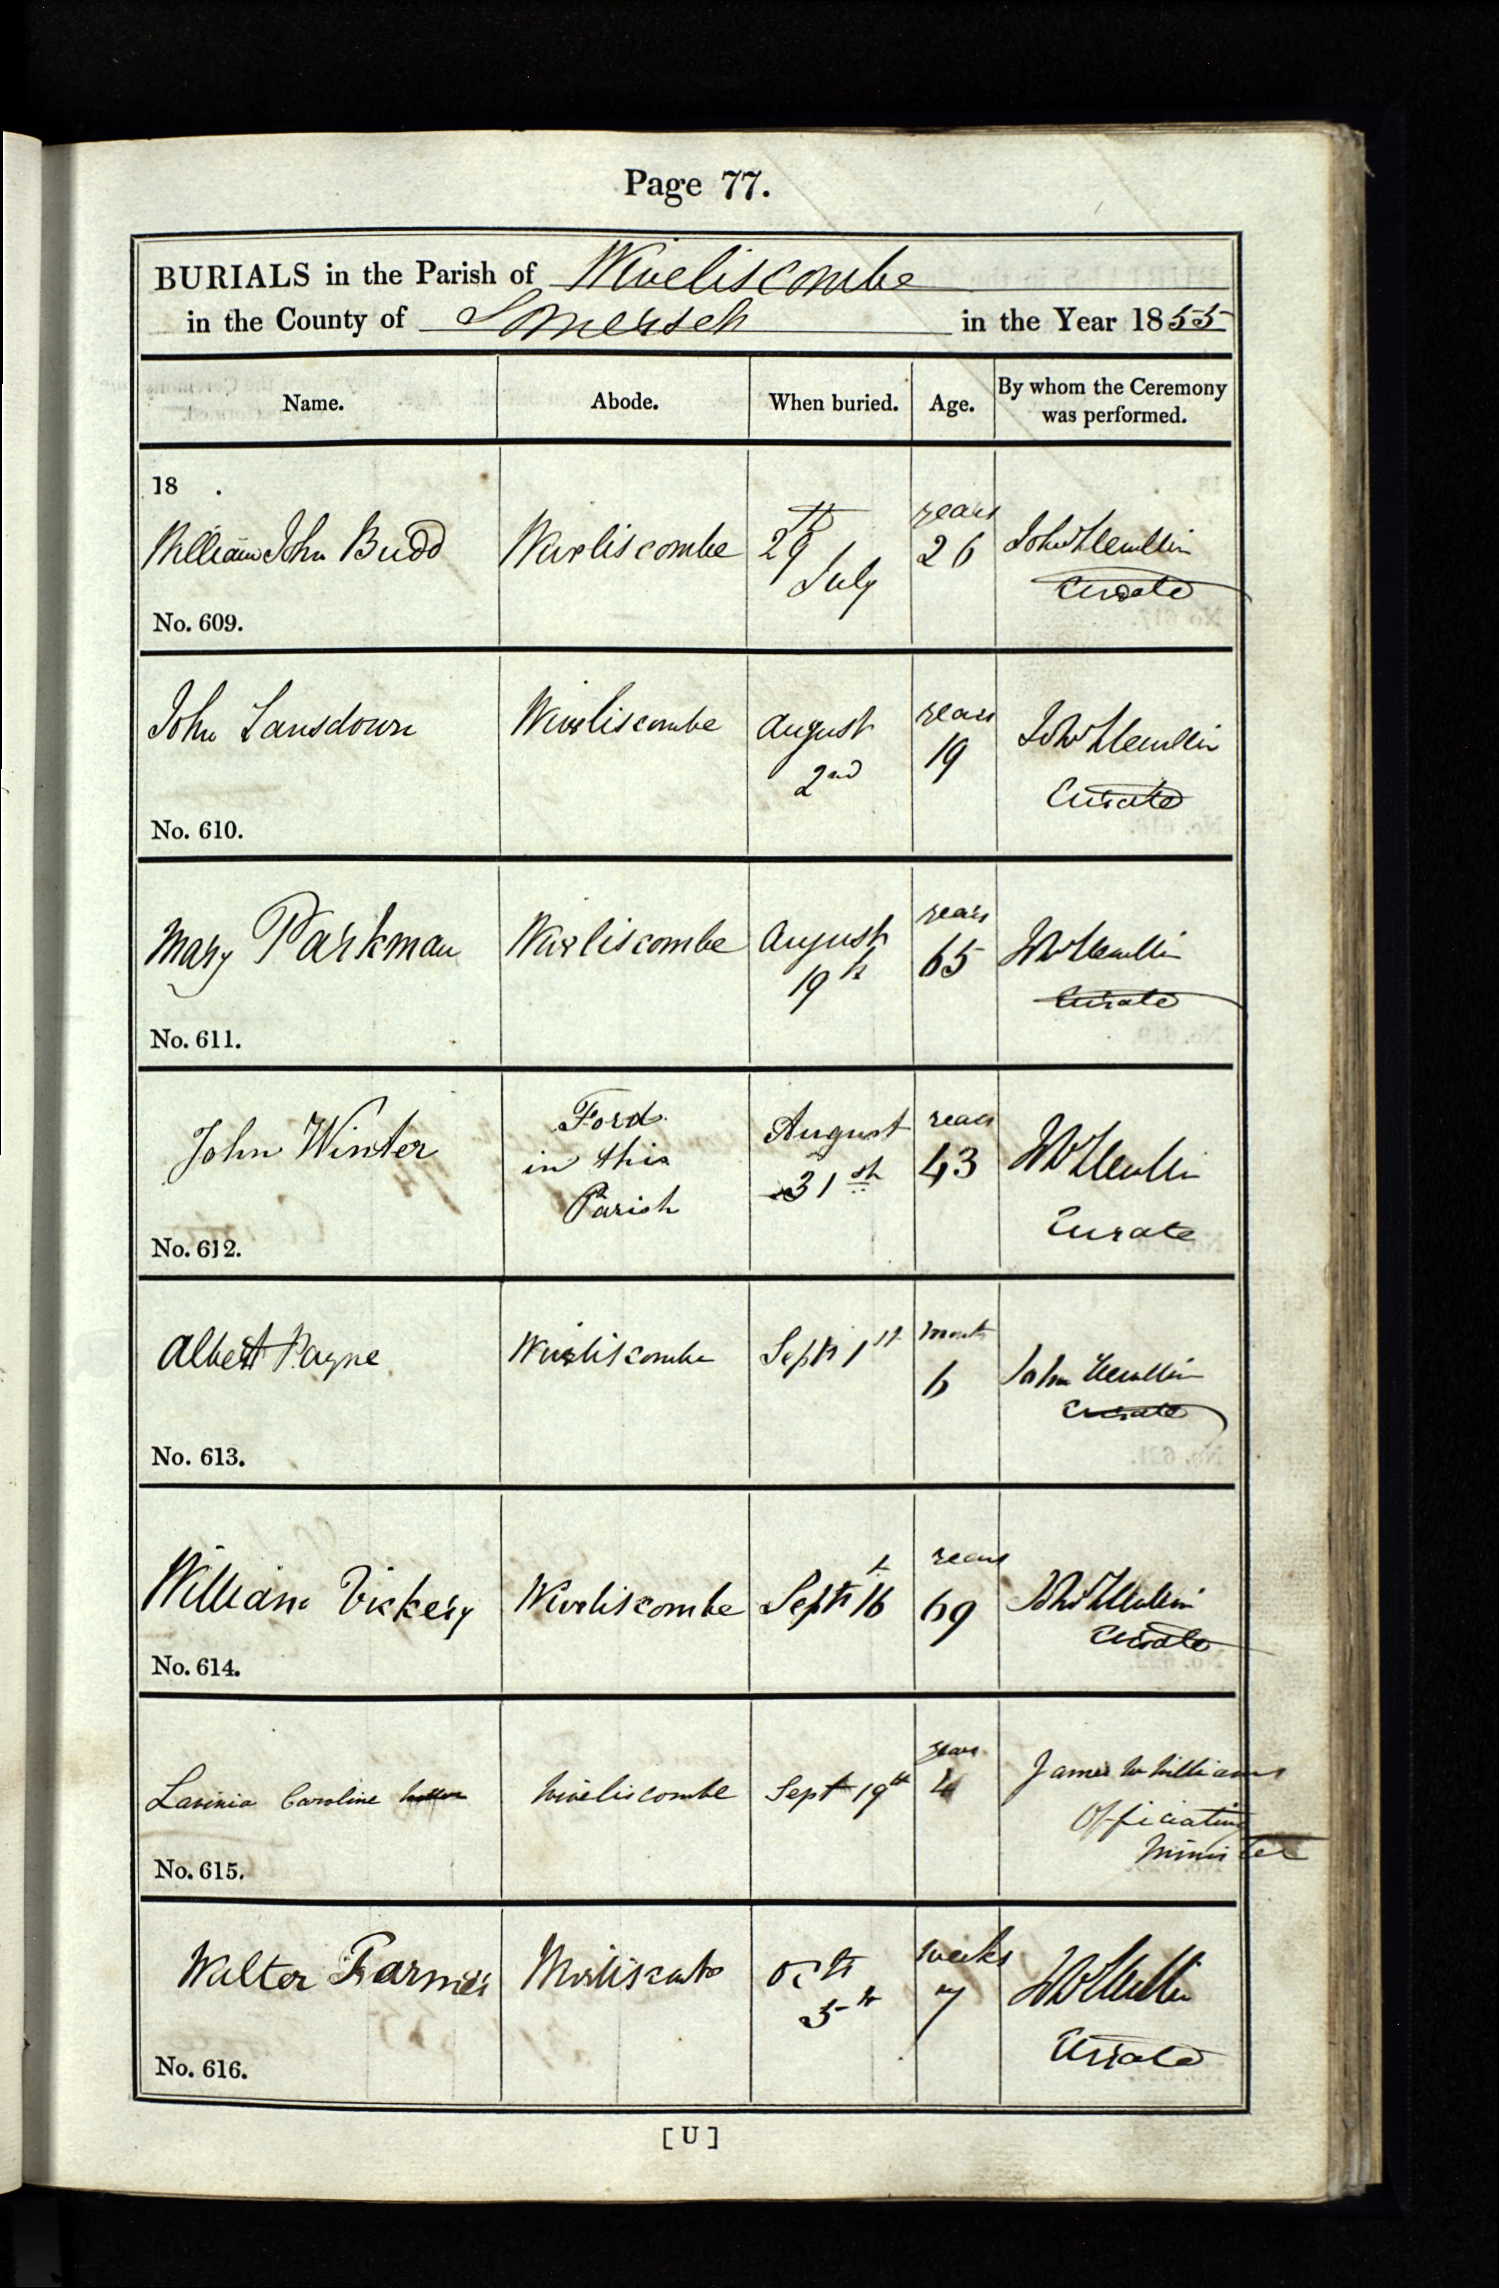 Page 77.
BURIALS in the Parish of Wiveliscombe
in the County of Somerset in the Year 1855
Name. Abode. When buried. Age. By whom the Ceremony was performed.
18 .
William John Budd Wiveliscombe 29th July years 26 John Llewellin Curate
No. 609.
John Lansdown Wiveliscombe August 2nd years 19 John Llewellin Curate
No. 610.
Mary Parkman Wiveliscombe August 19th years 65 Jno Llewellin Curate
No. 611.
John Winter Ford in this Parish August 31st years 43 Jno Llewellin Curate
No. 612.
Albert Payne Wiveliscombe Sept 1st months 6 John Llewellin Curate
No. 613.
William Vickery Wiveliscombe Sept 16 years 69 Jno Llewellin Curate
No. 614.
Lavinia Caroline Wiveliscombe Sept 19th years 4 James W Williams Officiating Minister
No. 615.
Walter Farmer Wiveliscombe Oct 5th weeks 7 Jno Llewellin Curate
No. 616.
[ U ]